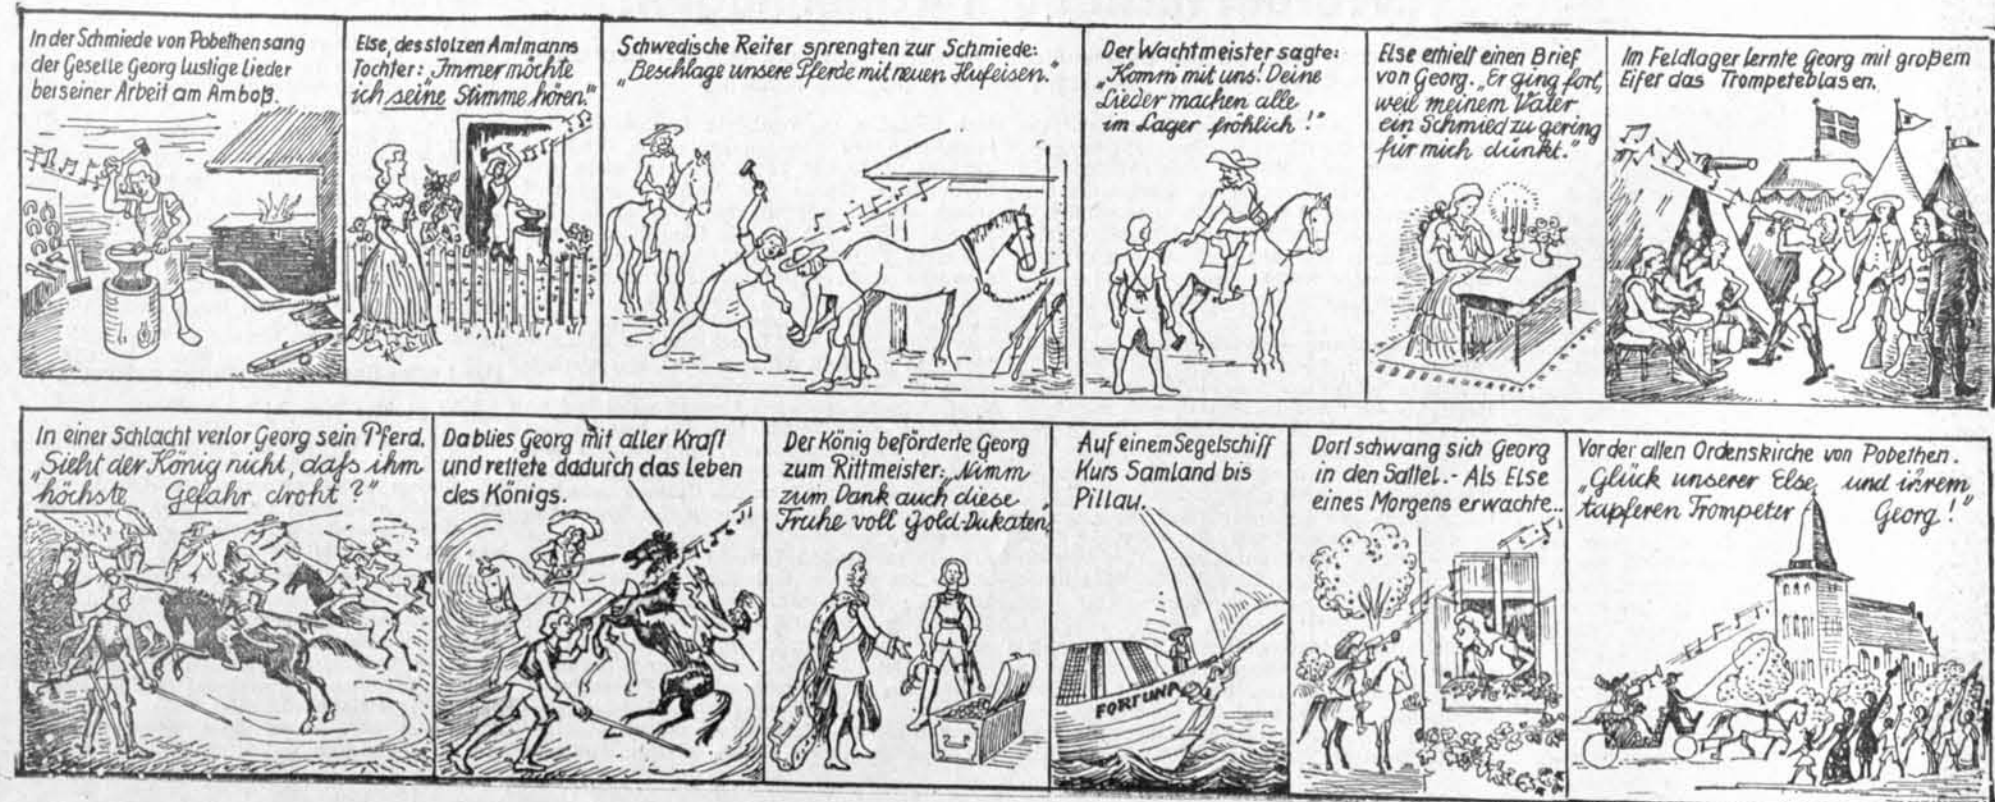 In der Schmiede von Pobethen sang
der Geselle Georg lustige Lieder
bei seiner Arbeit am Amboß.
Else, des stolzen Amtmanns
Tochter: „Immer möchte
ich seine Stimme hören."
Schwedische Reiter sprengten zur Schmiede:
„Beschlage unsere Pferde mit neuen Hufeisen."
Der Wachtmeister sagte:
„Komm mit uns! Deine
Lieder machen alle
im Lager fröhlich!"
Else erhielt einen Brief
von Georg. „Er ging fort,
weil meinem Vater
ein Schmied zu gering
für mich dünkt."
Im Feldlager lernte Georg mit großem
Eifer das Trompeteblasen.
In einer Schlacht verlor Georg sein Pferd.
„Sieht der König nicht, daß ihm
höchste Gefahr droht?"
Da blies Georg mit aller Kraft
und rettete dadurch das Leben
des Königs.
Der König beförderte Georg
zum Rittmeister: „Nimm
zum Dank auch diese
Truhe voll Gold-Dukaten."
Auf einem Segelschiff
Kurs Samland bis
Pillau.
FORTUNA
Dort schwang sich Georg
in den Sattel. - Als Else
eines Morgens erwachte...
Vor der alten Ordenskirche von Pobethen.
„Glück unserer Else und ihrem
tapferen Trompeter Georg!"